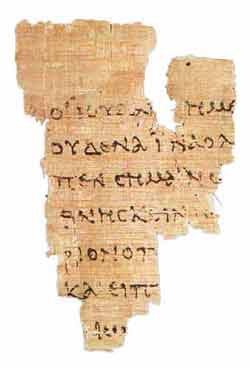 ΟΙ ΙΟΥΔΑΙ ΗΜΕ
ΟΥΔΕΝΑ ΙΝΑ Ο Λ
ΠΕΝ CΗΜΑΙΝ
ΘΝΗCΚΕΙΝ
ΡΙΟΝ Ο Π
ΚΑΙ ΕΙΠ